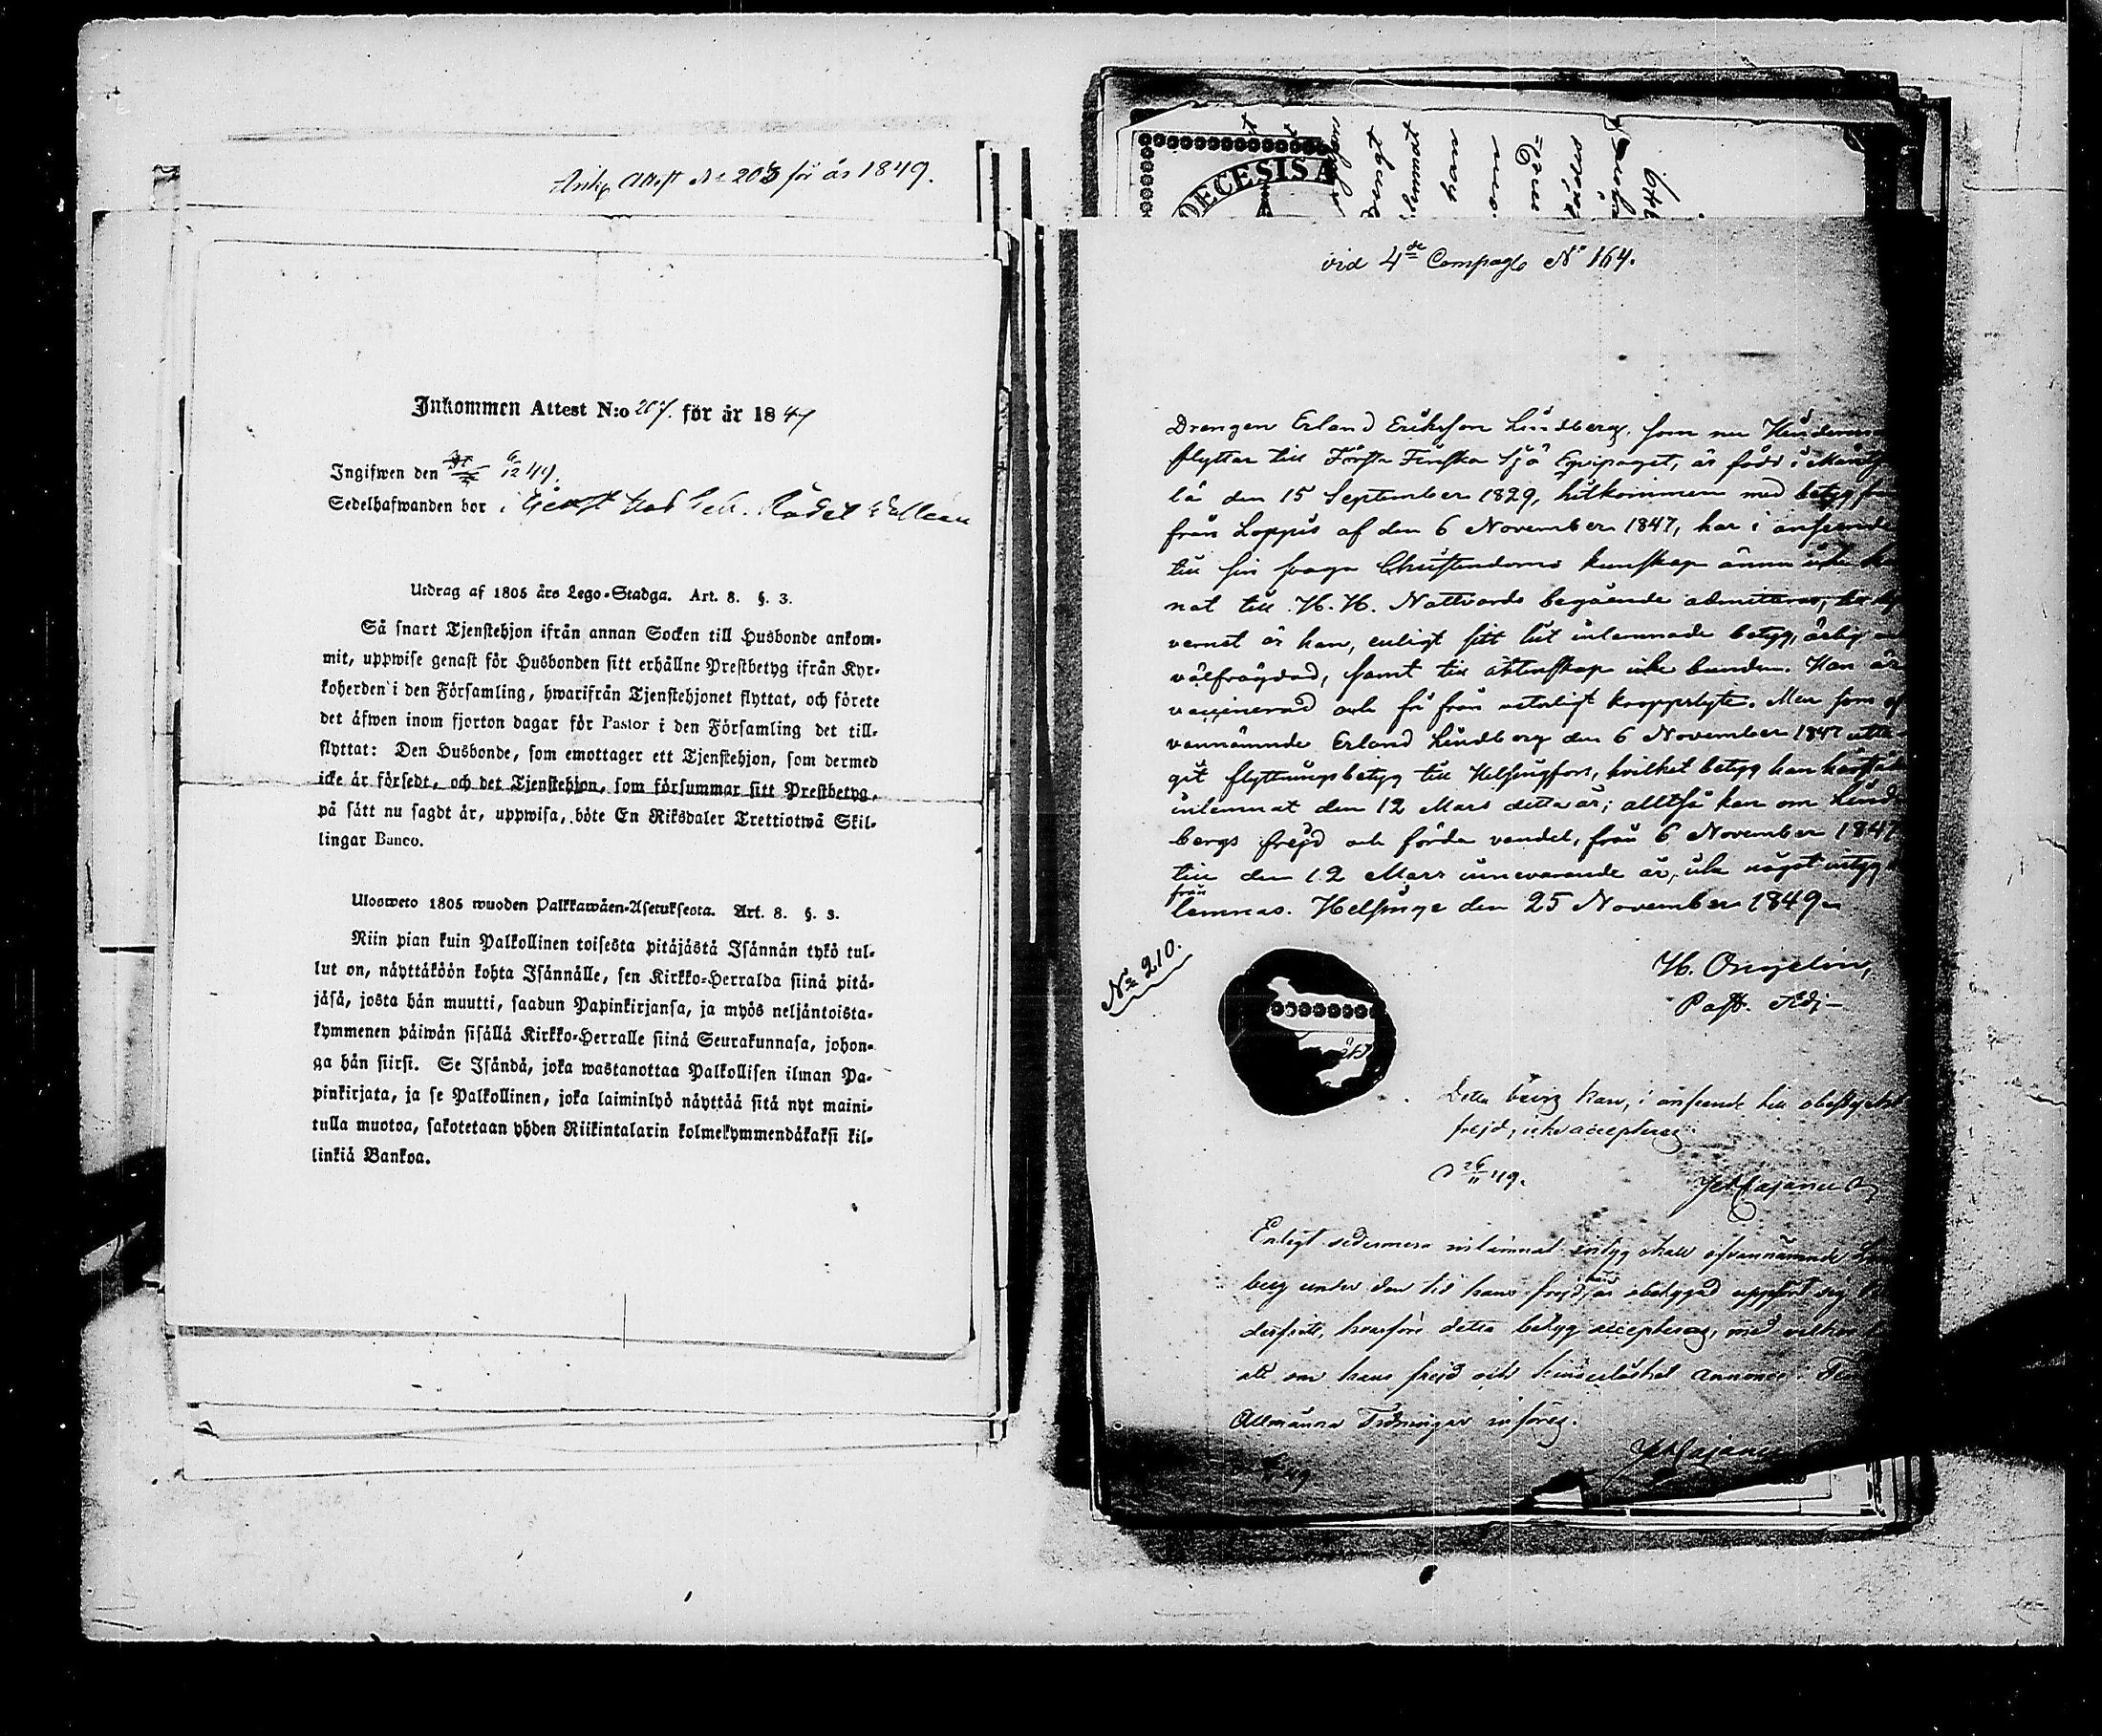 Ank. Attest No 203 för år 1849.
Inkommen Attest N:o 207. för år 1849
Ingifwen den 6/12 49.
Sedelhafwanden bor i tjenst hos
Utdrag af 1805 års Lego-Stadga. Art. 8. §. 3.
Så snart Tjenstehjon ifrån annan Socken till Husbonde ankom-
mit, uppwise genast för Husbonden sitt erhållne Prestbetyg ifrån Kyr-
koherden i den Församling, hwarifrån Tjenstehjonet flyttat, och förete
det äfwen inom fjorton dagar för Pastor i den Församling det till-
flyttat: Den Husbonde, som emottager ett Tjenstehjon, som dermed
icke är försedt, och det Tjenstehjon, som försummar sitt Prestbetyg,
på sätt nu sagdt är, uppwisa, böte En Riksdaler Trettiotwå Skil-
lingar Banco.
Ulosweto 1805 wuoden Palkkawäen-Asetuksesta. Art. 8. §. 3.
Niin pian kuin Palkollinen toisesta pitäjästä Isännän tykö tul-
lut on, näyttäköön kohta Isännälle, sen Kirkko-Herralda siinä pitä-
jäsä, josta hän muutti, saadun Papinkirjansa, ja myös neljäntoista-
kymmenen päiwän sisällä Kirkko-Herralle siinä Seurakunnasa, johon-
ga hän siirsi. Se Isändä, joka wastanottaa Palkollisen ilman Pa-
pinkirjata, ja se Palkollinen, joka laiminlyö näyttää sitä nyt maini-
tulla muotoa, sakotetaan yhden Riikintalarin kolmekymmendäkaksi kil-
linkiä Bankoa.
DECESIS A
vid 4de Compagt No 164.
Drengen Erland Eriksson Lindberg, som nu
flyttar till Första Finska Sjö Equipaget, är född i
lä den 15 September 1829, hitkommen med betyg
från Loppis af den 6 November 1847, har i anseende
till sin svaga Christendoms kunskap ännu icke
nat till H. H. Nattvards begående admitteras,
vernet är han, enligt sitt hit inlemnade betyg, ärlig
välfrägdad, samt till äktenskap icke bunden. Han är
vaccinerad och fri från veterligt kroppslyte. Men som of
vannämnde Erland Lindberg den 6 November 1847 utta-
git flyttningsbetyg till Helsingfors, hvilket betyg han härstädes
inlemnat den 12 Mars detta år; alltså kan om Lind-
bergs frejd och förda vandel, från 6 November 1847
till den 12 Mars innevarande år, icke något intyg
från
lemnas. Helsinge den 25 November 1849.
No 210.
Past. Adj.
Detta betyg kan, i anseende till obestyrkt
frejd, icke accepteras.
26/11 49.
Enligt sedermera inlemnat intyg skall ofvannämnde
berg under den tid hans frejd är obetygad uppfört sig
hvarföre detta betyg accepteras, med
att om hans frejd och annonce i
Allmänna Tidningar införes.